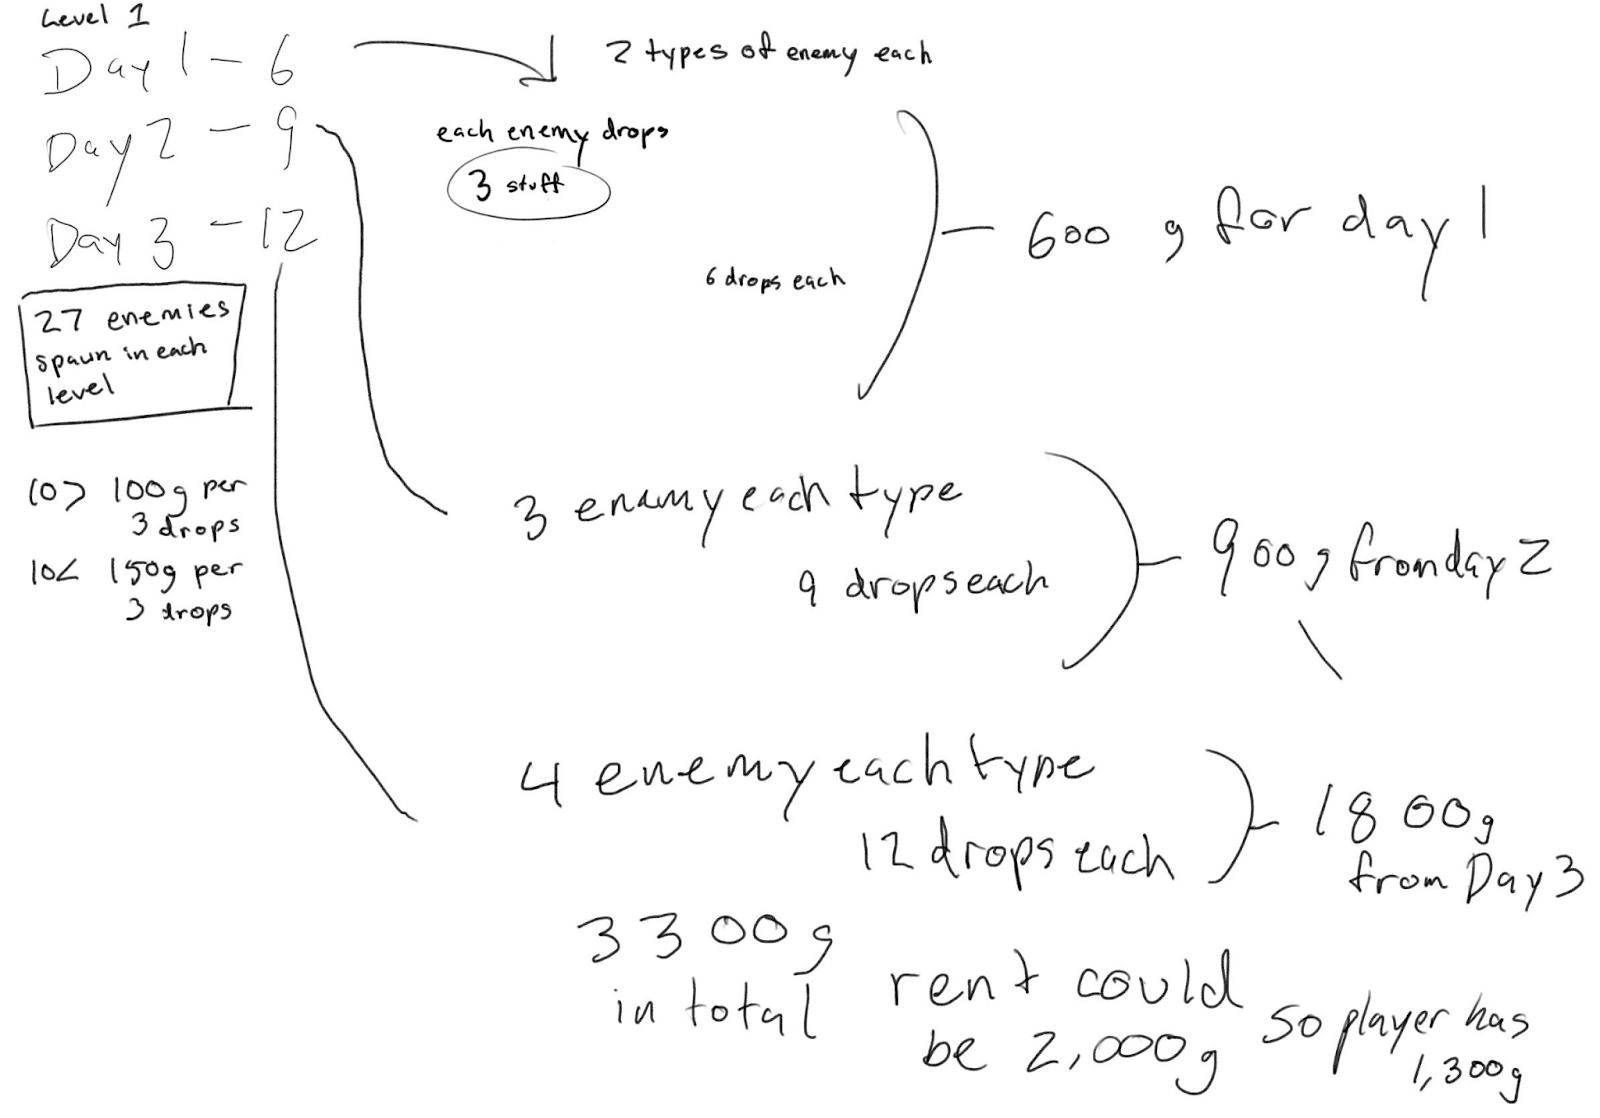 Level 1
Day 1 - 6
Day 2 - 9
Day 3 - 12
27 enemies
spawn in each
level
10> 100g per
3 drops
10< 150g per
3 drops
2 types of enemy each
each enemy drops
3 stuff
6 drops each
600 g for day 1
3 enamy each type
9 drops each
900g from day 2
4 enemy each type
12 drops each
1800g
from Day 3
3300g
in total
rent could
be 2,000g
so player has
1,300g